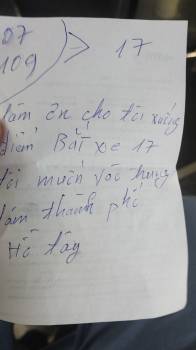 07
109
> 17
làm ơn cho tôi xuống
điểm Bắt xe 17
tôi muốn vào trung
tâm thành phố
Hồ tây